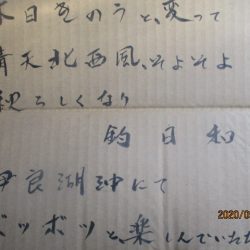 本日きのうと、変って
晴天北西風、そよそよ
ろしくなり
釣日和
伊良湖沖にて
ポツポツと、楽しんでいただ
2020/0